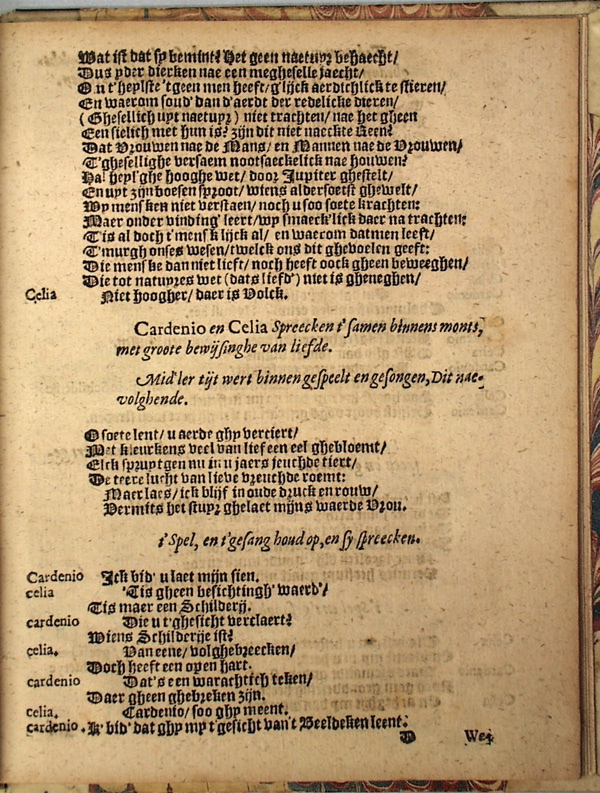 Wat ist dat sy bemint? Het geen naetuyr behaecht/
Dus yder dierken nae een megheselle jaecht/
Om t'heylste 'tgeen men heeft/ g'lijck aerdichlick te stieren/
En waerom soud' dan d'aerdt der redelicke dieren/
(Ghesellich uyt naetuyr) niet trachten/ nae het gheen
Een sielich met hun is? zijn dit niet naeckte Reen?
Dat Vrouwen nae de Mans/ en Mannen nae de Vrouwen/
T'ghesellighe versaem nootsaeckelick nae houwen?
Ha! heyl'ghe hooghe wet/ door Jupiter ghestelt/
En uyt zijn boesen sproot/ wiens alderfoetst ghewelt/
Wy mensken niet verstaen/ noch u soo soete krachten:
Maer onder vinding' leert/ wy smaeck'lick daer na trachten:
T'is al doch t'mensk lijck al/ en waerom datmen leeft/
T'murgh onses wesen/ twelck ons dit ghevoelen geeft:
Die menske dan niet lieft/ noch heeft oock gheen beweeghen/
Die tot natuyres wet (dats liefd') niet is gheneghen/
Celia Niet hoogher/ daer is Volck.
Cardenio en Celia Spreecken t'samen binnens monts,
met groote bewijsinghe van liefde.
Mid'ler tijt wert binnen gespeelt en gesongen, Dit nae-
volghende.
O soete lent/ u aerde ghy verciert/
Met kleurkens veel van lief een eel ghebloemt/
Elck spruytgen nu in u jaers jeuchde tiert/
De teere lucht van lieve vreuchde roemt:
Maer laes/ ick blijf in oude druck en rouw/
Vermits het stuyr ghelaet mijns waerde Vrou.
t'Spel, en t'gesang houd op, en sy spreecken.
Cardenio Ick bid' u laet mijn sien.
celia 'Tis gheen besichtingh' waerd'/
Tis maer een Schilderij.
cardenio Die u t'ghesicht verclaert?
Wiens Schilderije ist?
celia. Van eene/ volghebreecken/
Doch heeft een open hart.
cardenio Dat's een warachtich teken/
Daer gheen ghebreken zijn.
celia. Cardenio/ soo ghy meent.
cardenio. K' bid' dat ghy my t'gesicht van't Beeldeken leent.
D Wes